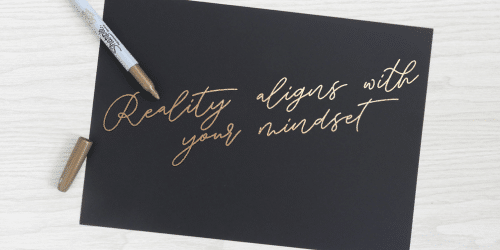 Sharpie
Reality aligns with
your mindset